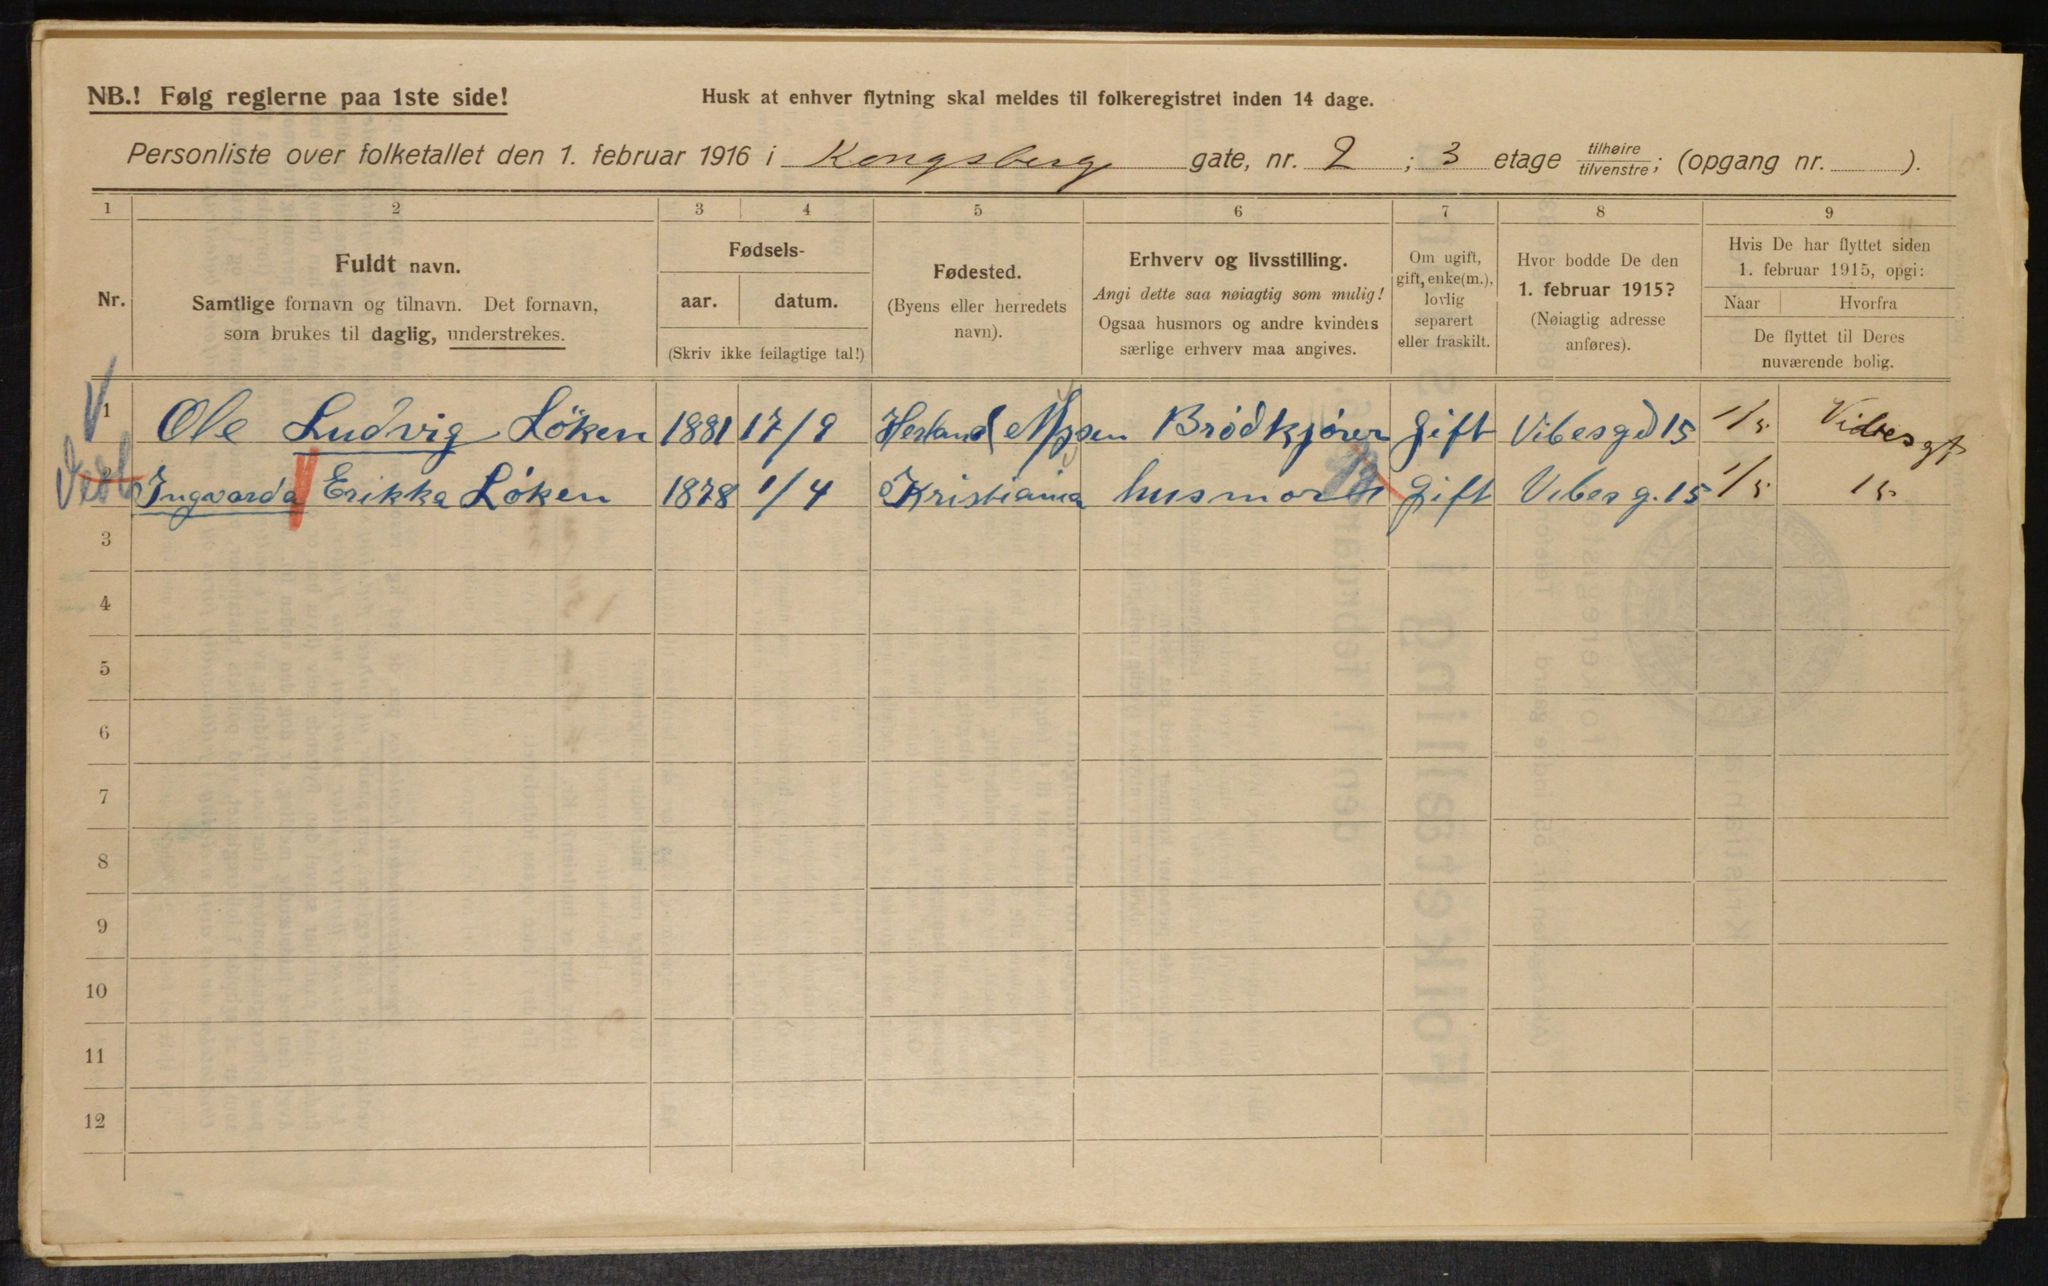 NB.! Følg reglerne paa 1ste side!
Husk at enhver flytning skal meldes til folkeregistret inden 14 dage.
Personliste over folketallet den 1. februar 1916 i Kongsberg gate, nr. 2 ; 3 etage tilhøire/tilvenstre; (opgang nr. ).
1 2 3 4 5 6 7 8 9
Nr.
Fuldt navn.
Samtlige fornavn og tilnavn. Det fornavn,
som brukes til daglig, understrekes.
Fødsels-
aar. datum.
(Skriv ikke feilagtige tal!)
Fødested.
(Byens eller herredets
navn).
Erhverv og livsstilling.
Angi dette saa nøiagtig som mulig!
Ogsaa husmors og andre kvinders
særlige erhverv maa angives.
Om ugift,
gift, enke(m.),
lovlig
separert
eller fraskilt.
Hvor bodde De den
1. februar 1915?
(Nøiagtig adresse
anføres).
Hvis De har flyttet siden
1. februar 1915, opgi:
Naar Hvorfra
De flyttet til Deres
nuværende bolig.
1 Ole Ludvig Løken 1881 17/9 Brødkjører gift Vibesgd 15 1/5 Vibesgt
2 Ingvarda Erikka Løken 1878 1/4 Kristiania husmor gift Vibesg. 15 1/5 15
3
4
5
6
7
8
9
10
11
12